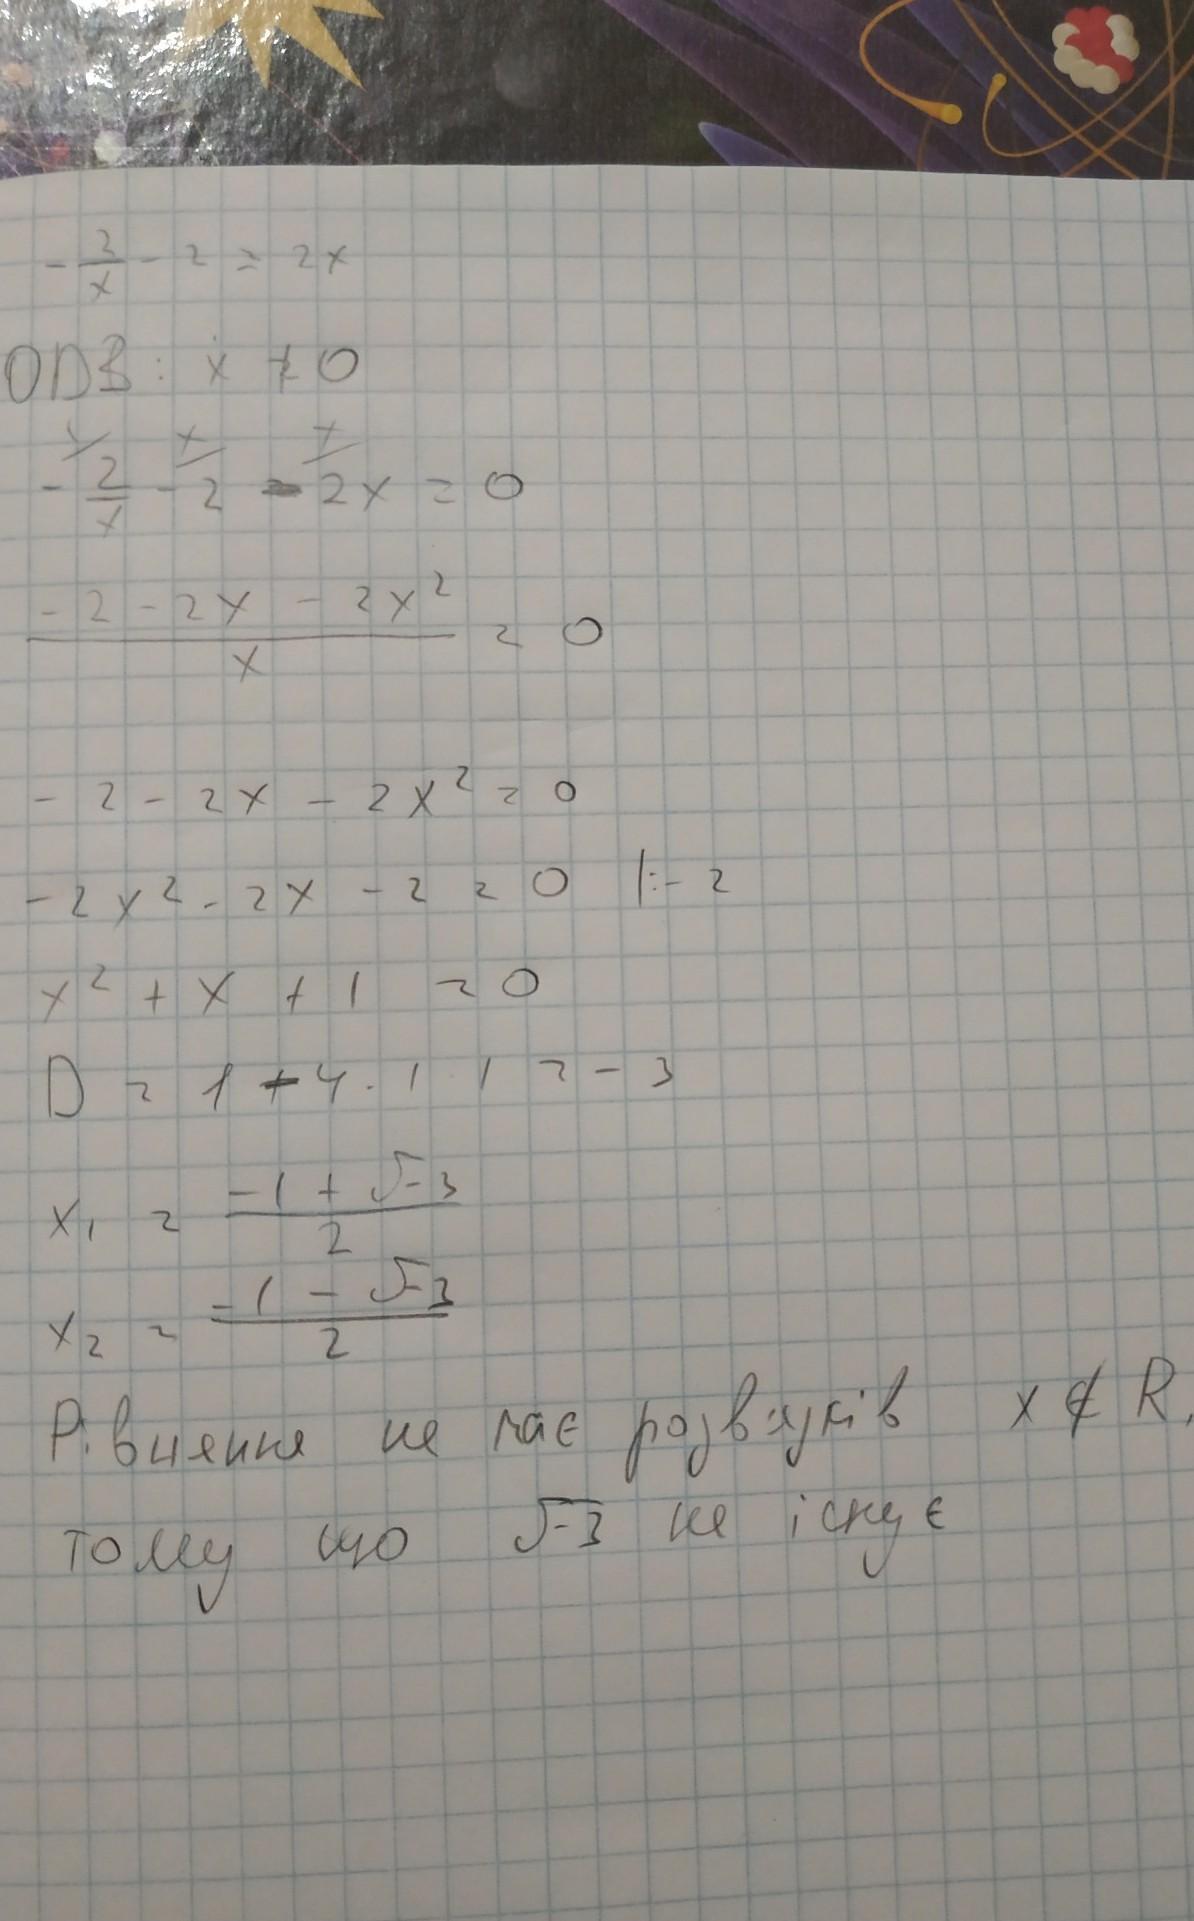 - 2/x - 2 = 2x
ОДЗ: x ≠ 0
- 2/x - 2 - 2x = 0
(- 2 - 2x - 2x²)/x = 0
- 2 - 2x - 2x² = 0
- 2x² - 2x - 2 = 0 |:- 2
x² + x + 1 = 0
D = 1 - 4 · 1 · 1 = - 3
x₁ = (-1 + √-3)/2
x₂ = (-1 - √-3)/2
Рівняння не має розв'язків x ∉ R,
тому що √-3 не існує